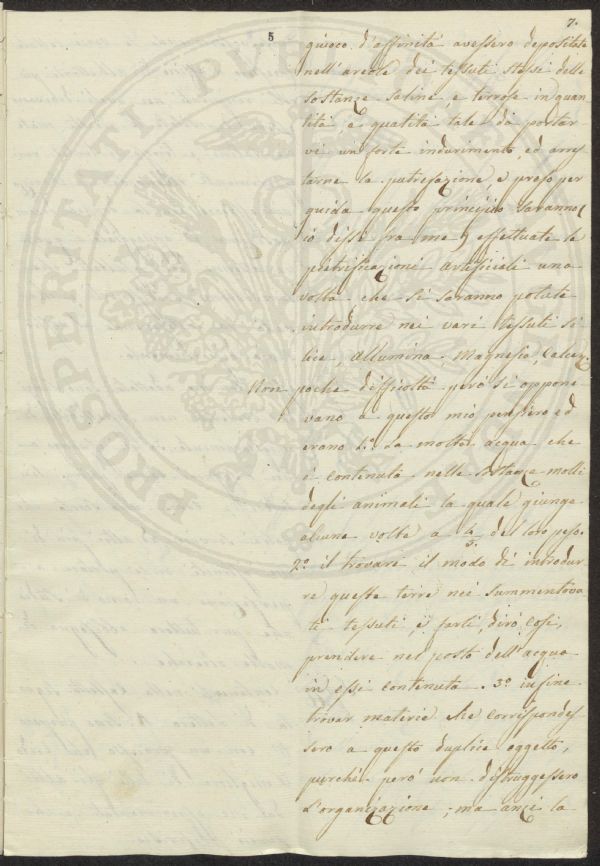 7.
5
giuoco d'affinità avessero depositate
nell'areole dei tessuti stessi delle
sostanze saline e terrose in quan
tità, e qualità tale da portar
vi un forte indurimento, ed arres
tarne la putrefazione, e preso per
guida questo principio saranno (
io dissi fra me) effettuate le
pietrificazioni artificiali una
volta che si saranno potute
introdurre nei vari tessuti si
lice, Allumina Magnesia, Calce
Non poche difficoltà però si oppone
vano a questo mio pensiero ed
erano 1.º La molta acqua che
è contenuta nelle sostanze molli
degli animali la quale giunge
alcune volte a 4/5 del loro peso.
2.º il trovare il modo di introdur
re queste terre nei summentova
ti tessuti, e farli, dirò così,
prendere nel posto dell'acqua
in essi contenuta. 3.º infine
trovar materie che corrispondes
sero a questo duplice oggetto,
purchè però non distruggessero
l'organizazione; ma anzi la
PROSPERITATI PUB